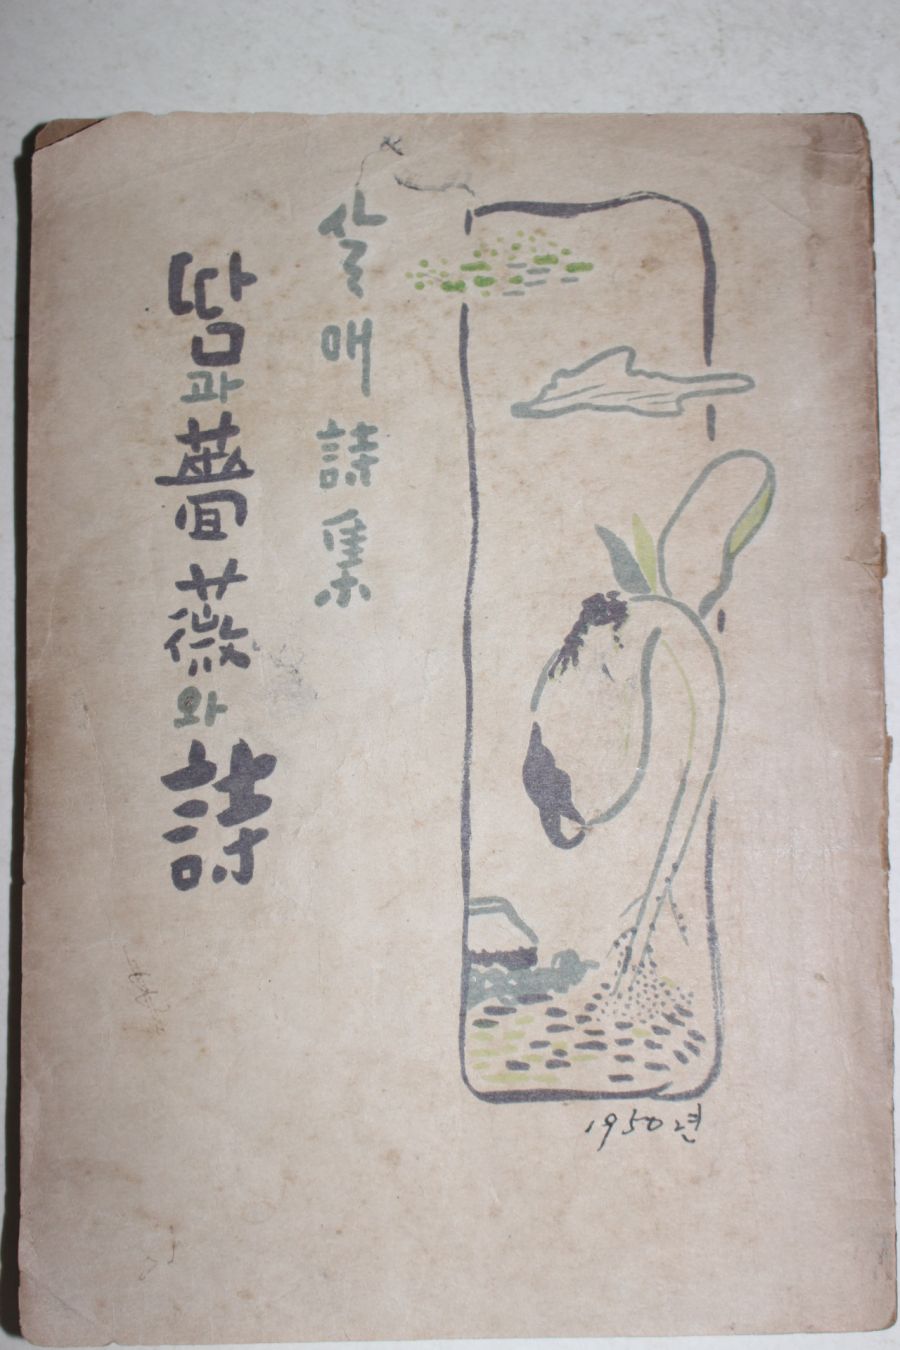 살매詩集
땀과薔薇와詩
1950년